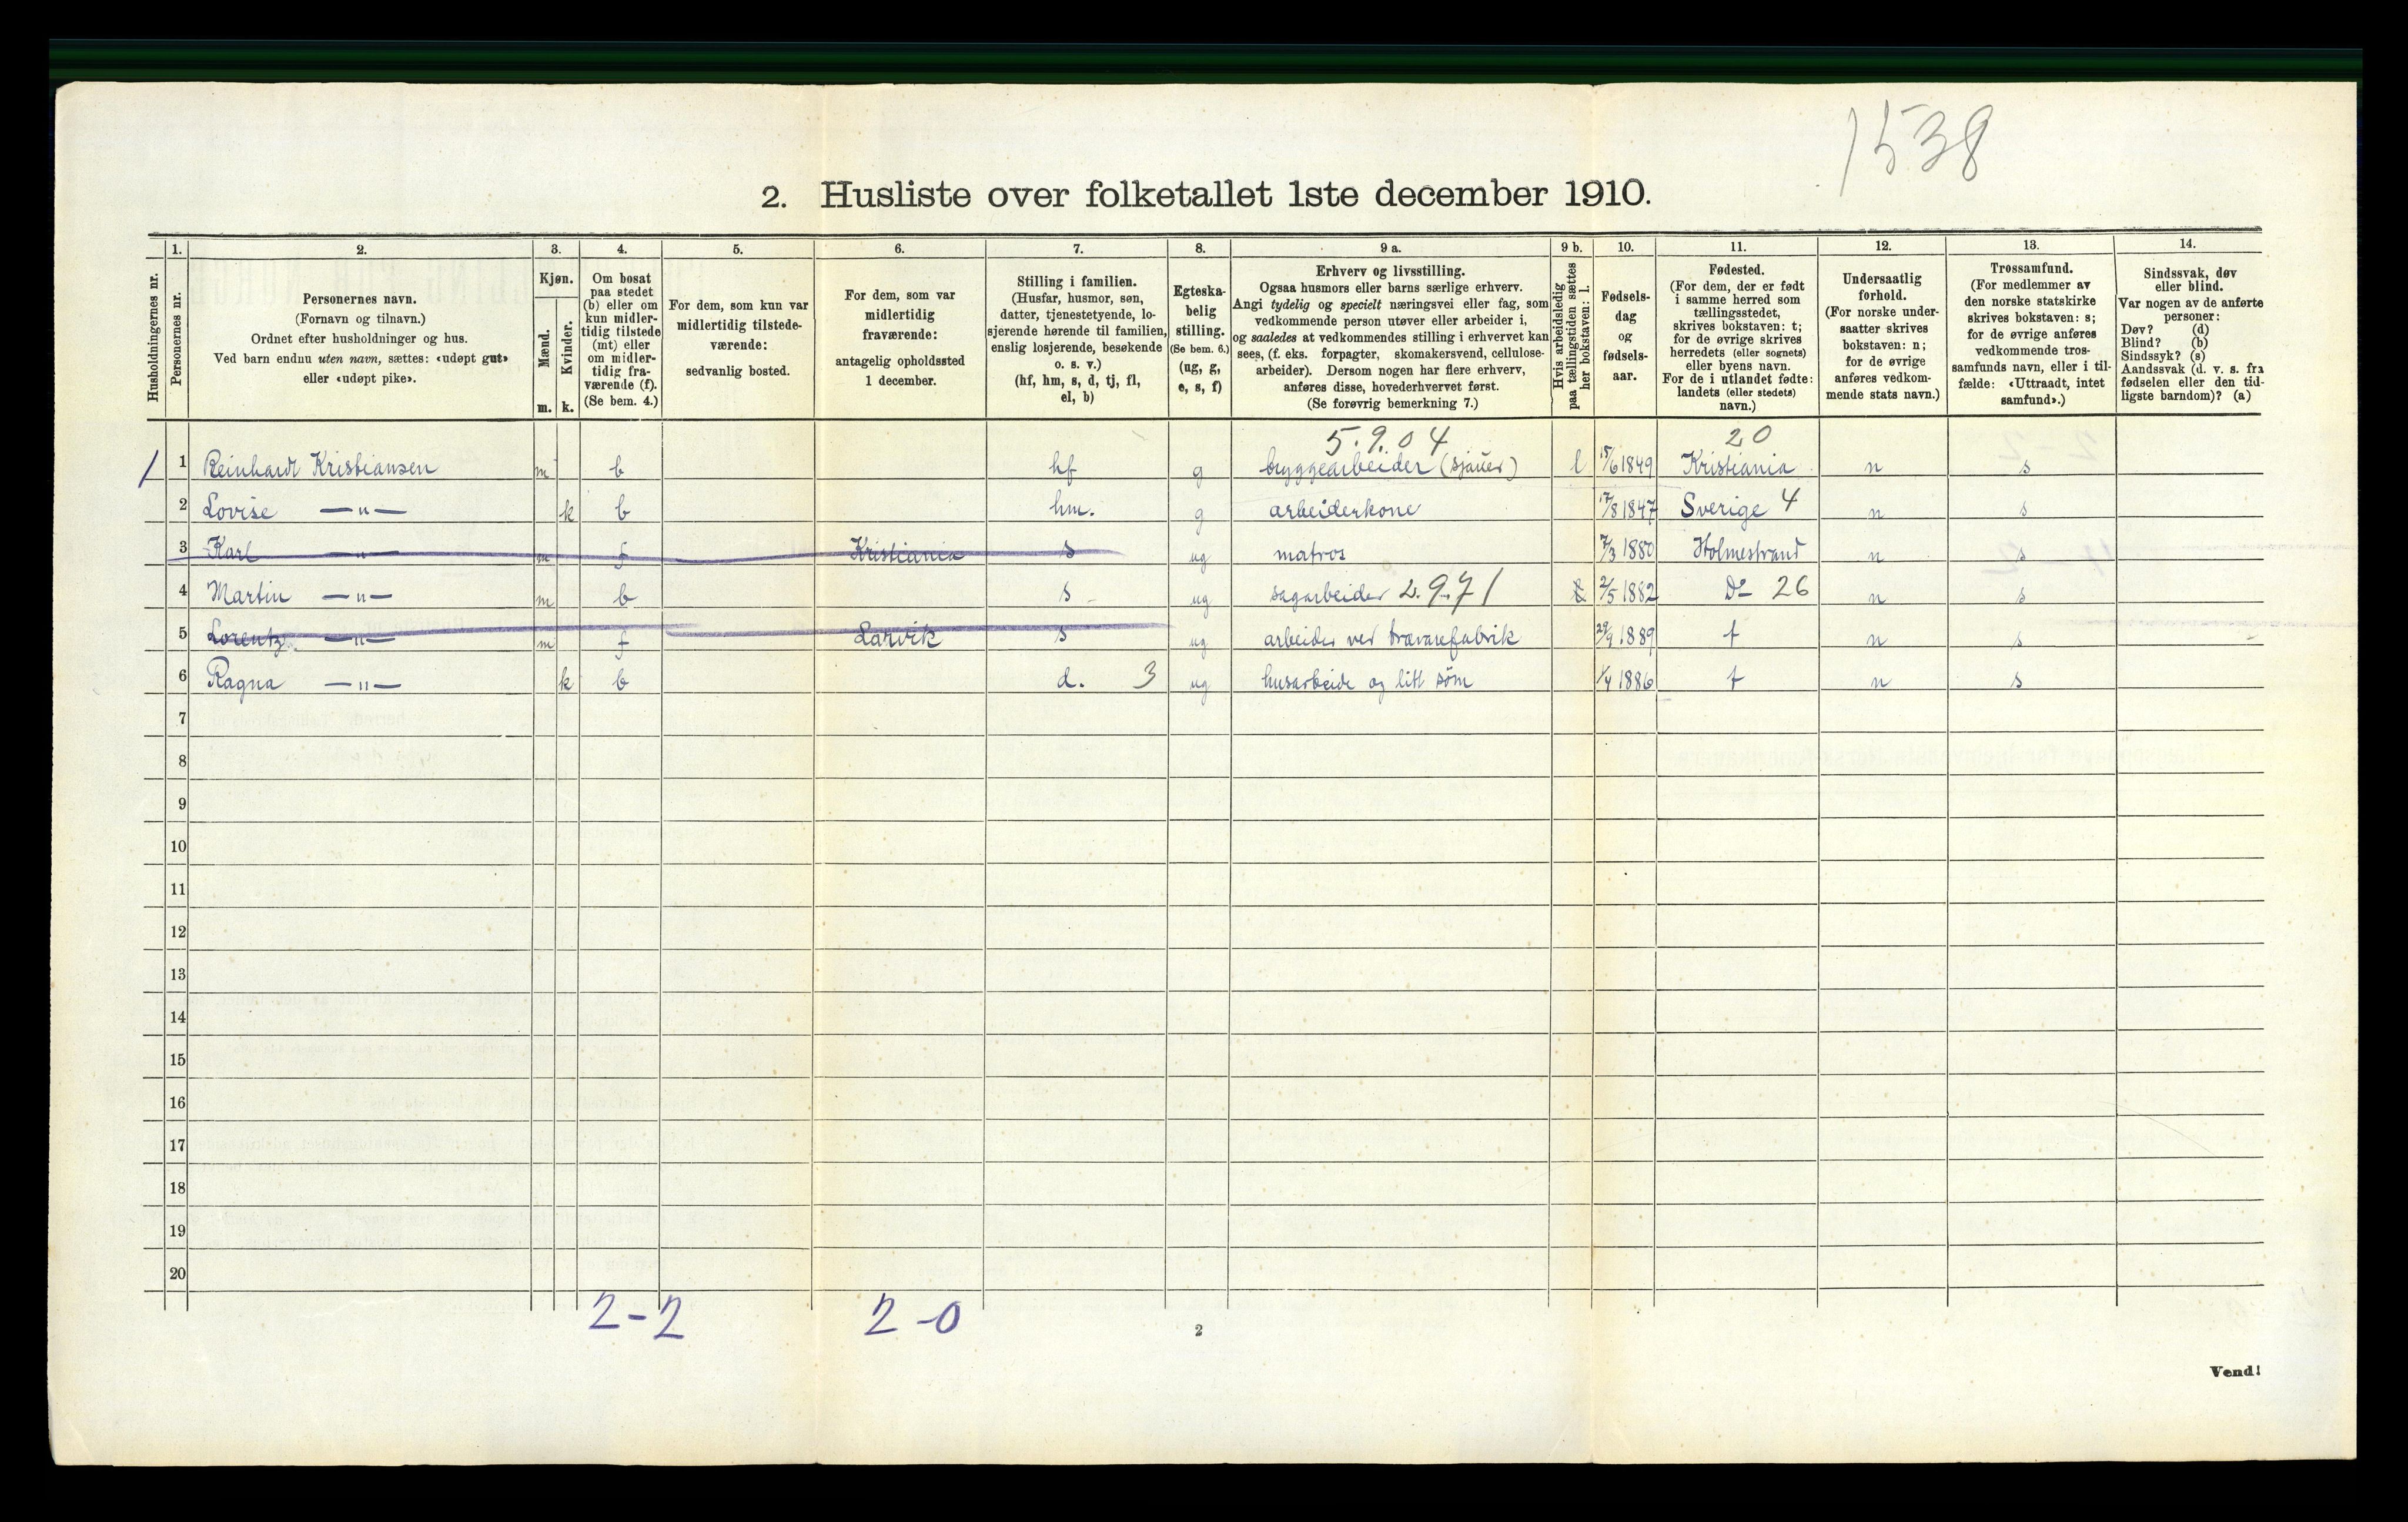 1538
2. Husliste over folketallet 1ste december 1910.
Husholdningernes nr.
1.
Personernes nr.
2.
Personernes navn.
(Fornavn og tilnavn.)
Ordnet efter husholdninger og hus.
Ved barn endnu uten navn, sættes: «udøpt gut»
eller «udøpt pike».
3.
Kjøn.
Mænd.
Kvinder.
m. k.
4.
Om bosat
paa stedet
(b) eller om
kun midler-
tidig tilstede
(mt) eller
om midler-
tidig fra-
værende (f).
(Se bem. 4.)
5.
For dem, som kun var
midlertidig tilstede-
værende:
sedvanlig bosted.
6.
For dem, som var
midlertidig
fraværende:
antagelig opholdssted
1 december.
7.
Stilling i familien.
(Husfar, husmor, søn,
datter, tjenestetyende, lo-
sjerende hørende til familien,
enslig losjerende, besøkende
o. s. v.)
(hf, hm, s, d, tj, fl,
el, b)
8.
Egteska-
belig
stilling.
(Se bem. 6.)
(ug, g,
e, s, f)
9 a.
Erhverv og livsstilling.
Ogsaa husmors eller barns særlige erhverv.
Angi tydelig og specielt næringsvei eller fag, som
vedkommende person utøver eller arbeider i,
og saaledes at vedkommendes stilling i erhvervet kan
sees, (f. eks. forpagter, skomakersvend, cellulose-
arbeider). Dersom nogen har flere erhverv,
anføres disse, hovederhvervet først.
(Se forøvrig bemerkning 7.)
9 b.
Hvis arbeidsledig
paa tællingstiden sættes
her bokstaven: l.
10.
Fødsels-
dag
og
fødsels-
aar.
11.
Fødested.
(For dem, der er født
i samme herred som
tællingsstedet,
skrives bokstaven: t;
for de øvrige skrives
herredets (eller sognets)
eller byens navn.
For de i utlandet fødte:
landets (eller stedets)
navn.)
12.
Undersaatlig
forhold.
(For norske under-
saatter skrives
bokstaven: n;
for de øvrige
anføres vedkom-
mende stats navn.)
13.
Trossamfund.
(For medlemmer av
den norske statskirke
skrives bokstaven: s;
for de øvrige anføres
vedkommende tros-
samfunds navn, eller i til-
fælde: «Uttraadt, intet
samfund».)
14.
Sindssvak, døv
eller blind.
Var nogen av de anførte
personer:
Døv? (d)
Blind? (b)
Sindssyk? (s)
Aandssvak (d. v. s. fra
fødselen eller den tid-
ligste barndom)? (a)
5.9.04 20
1 1 Reinhardt Kristiansen m b hf g bryggearbeider (sjauer) l 15/6 1849 Kristiania n s
2 Lovise —„— k b hm. g arbeiderkone 17/8 1847 Sverige 4 n s
3 Karl —„— m f Kristiania s ug matros 7/3 1880 Holmestrand n s
4 Martin —„— m b s ug sagarbeider 2.9.71 2/5 1882 Do 26 n s
5 Lorentz —„— m f Larvik s ug arbeider ved trævarefabrik 29/9 1889 t n s
6 Ragna —„— k b d. 3 ug husarbeide og litt søm 1/4 1886 t n s
7
8
9
10
11
12
13
14
15
16
17
18
19
20
2-2 2-0
2
Vend!